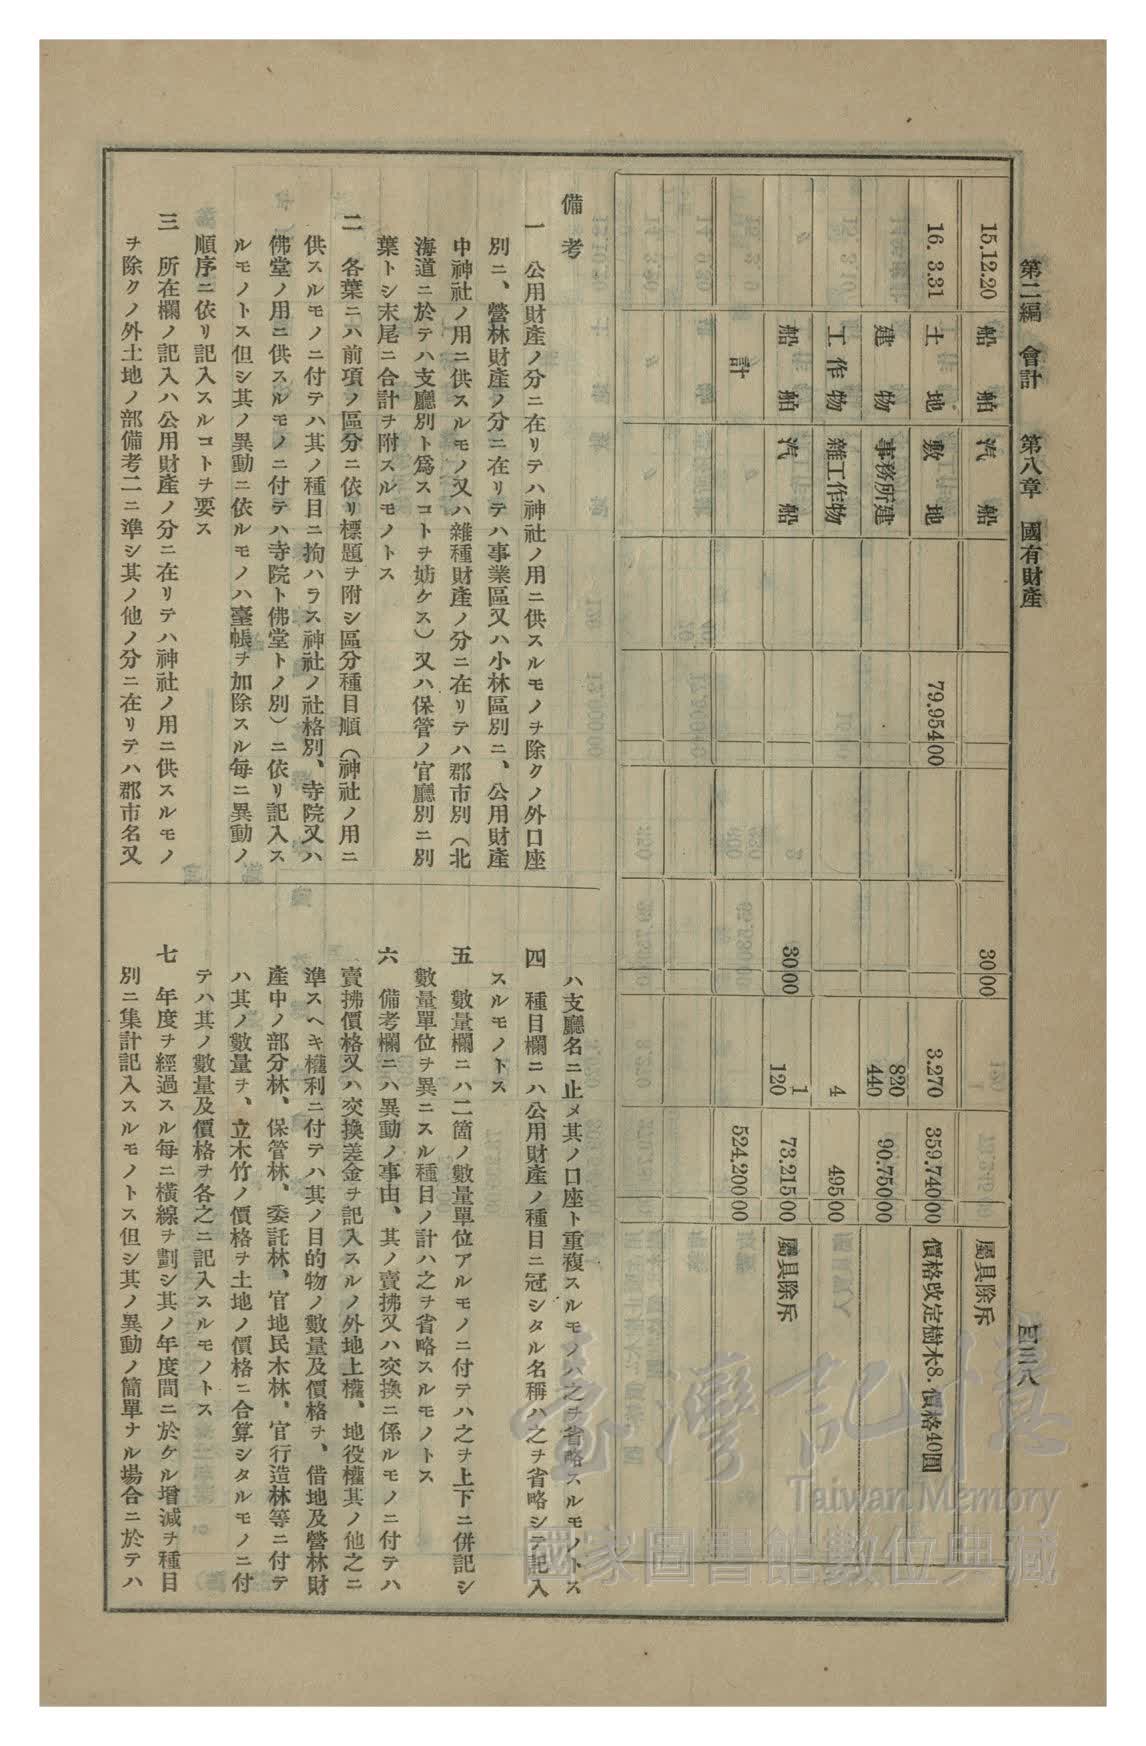 第二編　會計　　第八章　國有財產　　四三八
15.12.20　船舶　汽船　30 00　屬具除斥
16. 3.31　土地　敷地　79.954 00　3.270　359.740 00　價格改定樹木8. 價格40圓
建物　事務所建　820　440　90.750 00
工作物　雜工作物　4　495 00
船舶　汽船　30 00　1　120　73.215 00　屬具除斥
計　524.200 00
備考
一　公用財產ノ分ニ在リテハ神社ノ用ニ供スルモノヲ除クノ外口座
別ニ、營林財產ノ分ニ在リテハ事業區又ハ小林區別ニ、公用財產
中神社ノ用ニ供スルモノ又ハ雜種財產ノ分ニ在リテハ郡市別（北
海道ニ於テハ支廳別ト爲スコトヲ妨ケス）又ハ保管ノ官廳別ニ別
葉トシ末尾ニ合計ヲ附スルモノトス
二　各葉ニハ前項ノ區分ニ依リ標題ヲ附シ區分種目順（神社ノ用ニ
供スルモノニ付テハ其ノ種目ニ拘ハラス神社ノ社格別、寺院又ハ
佛堂ノ用ニ供スルモノニ付テハ寺院ト佛堂トノ別）ニ依リ記入ス
ルモノトス但シ其ノ異動ニ依ルモノハ臺帳ヲ加除スル每ニ異動ノ
順序ニ依リ記入スルコトヲ要ス
三　所在欄ノ記入ハ公用財產ノ分ニ在リテハ神社ノ用ニ供スルモノ
ヲ除クノ外土地ノ部備考二ニ準シ其ノ他ノ分ニ在リテハ郡市名又
ハ支廳名ニ止メ其ノ口座ト重複スルモノハ之ヲ省略スルモノトス
四　種目欄ニハ公用財產ノ種目ニ冠シタル名稱ハ之ヲ省略シテ記入
スルモノトス
五　數量欄ニハ二箇ノ數量單位アルモノニ付テハ之ヲ上下ニ併記シ
數量單位ヲ異ニスル種目ノ計ハ之ヲ省略スルモノトス
六　備考欄ニハ異動ノ事由、其ノ賣拂又ハ交換ニ係ルモノニ付テハ
賣拂價格又ハ交換差金ヲ記入スルノ外地上權、地役權其ノ他之ニ
準スヘキ權利ニ付テハ其ノ目的物ノ數量及價格ヲ、借地及營林財
產中ノ部分林、保管林、委託林、官地民木林、官行造林等ニ付テ
ハ其ノ數量ヲ、立木竹ノ價格ヲ土地ノ價格ニ合算シタルモノニ付
テハ其ノ數量及價格ヲ各之ニ記入スルモノトス
七　年度ヲ經過スル每ニ橫線ヲ劃シ其ノ年度間ニ於ケル增減ヲ種目
別ニ集計記入スルモノトス但シ其ノ異動ノ簡單ナル場合ニ於テハ
臺灣記憶
Taiwan Memory
國家圖書館數位典藏